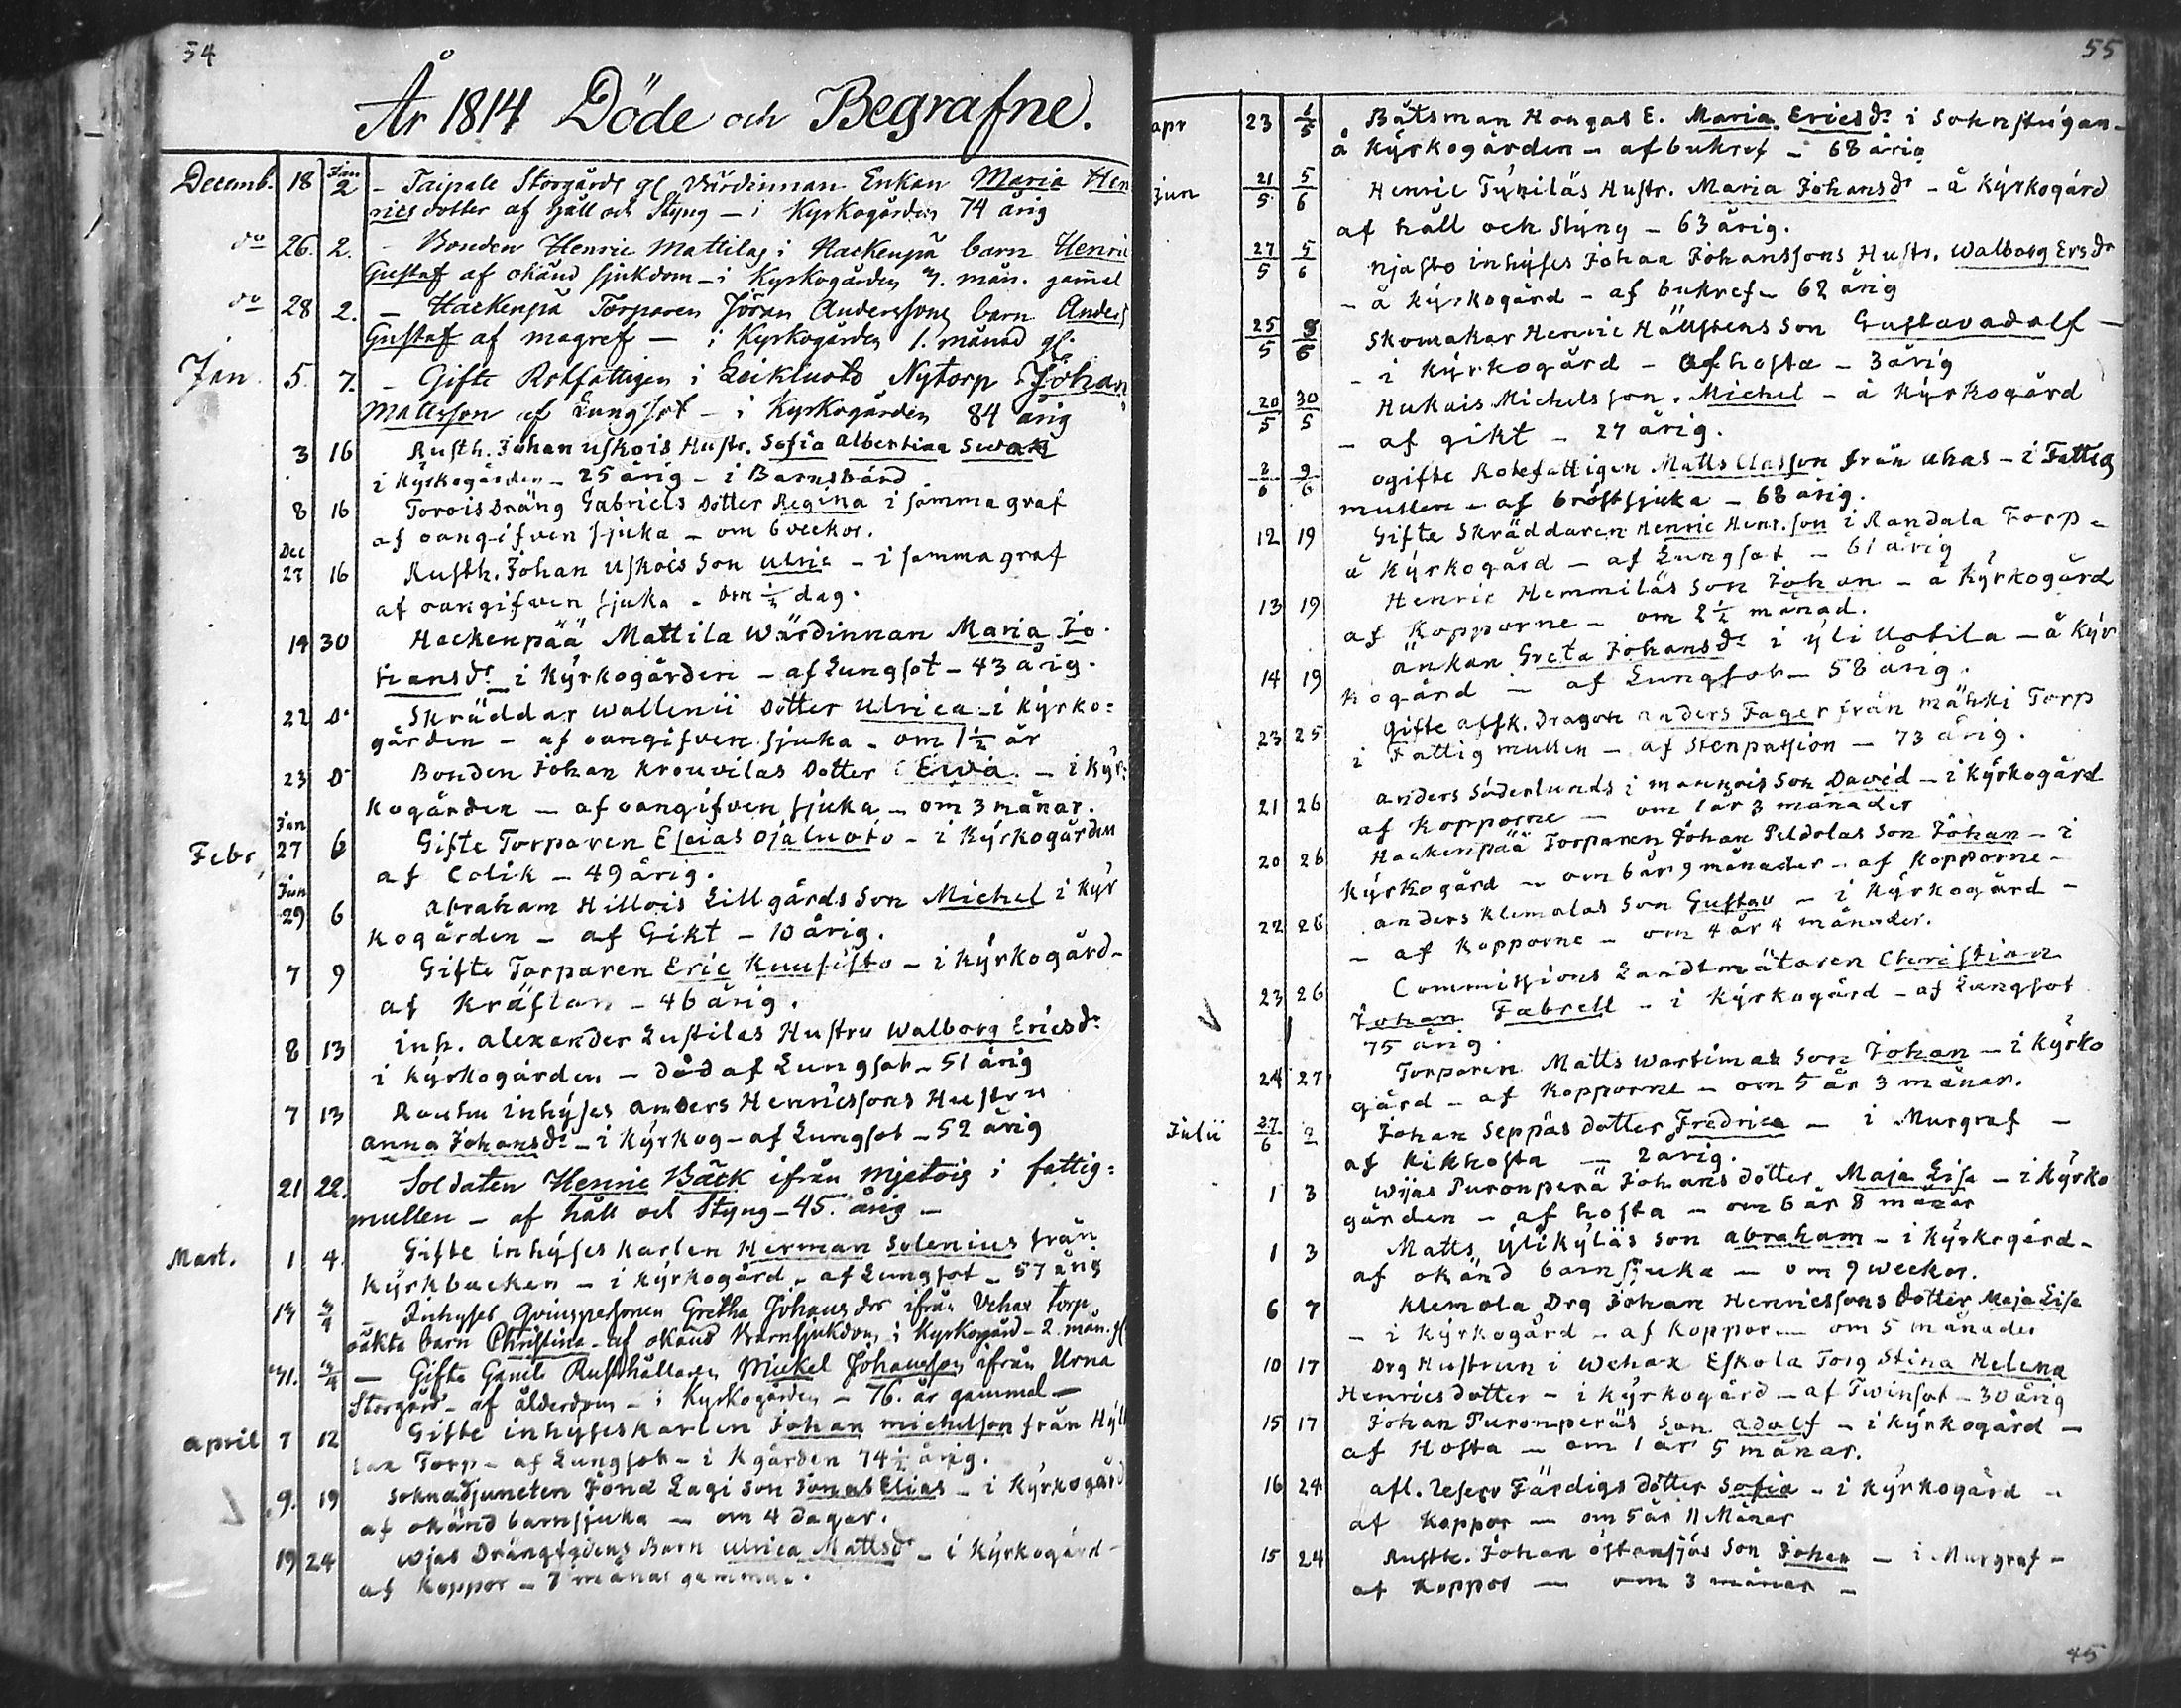 54
År 1814 Döde och Begrafne.
Decemb. 18 Jan 2 - Taipale Storgårds gl Värdinnan Enkan Maria Hen
ricsdotter af håll och Styng - i Kyrkogården 74 årig
do 26. 2. - Bonden Henric Mattilas i Hackenpä barn Henric
Gustaf af okänd sjukdom - i Kyrkogården 7. mån. gamel
do 28 2. - Hackenpä Torparen Jöran Anderssons barn Anders
Gustaf af magref - i Kyrkogården 1. månad gl.
Jan. 5. 7. - Gifte Rotfattigen i Leikluoto Nytorp Johan
Mattsson af Lungsot - i Kyrkogården 84 årig
3 16 Rusth. Johan Uskois Hustr. Sofia Albertina Swan
i Kyrkogården - 25 årig - i Barnsbörd
8 16 Torois Dräng Gabriels Dotter Regina i samma graf
af oangifven sjuka - om 6 veckor.
Dec 27 16 Rusth. Johan Uskois Son Ulric - i samma graf
af oangifven sjuka - om ½ dag.
14 30 Hackenpää Mattila Wärdinnan Maria Jo-
hansdr. i Kyrkogården - af Lungsot - 43 årig.
22 D° Skräddar Wallenii Dotter Ulrica - i Kyrko:
gården - af oangifven sjuka - om 1½ år
23 D° Bonden Johan Krouvilas Dotter Ewa - i Kyr:
kogården - af oangifven sjuka - om 3 månar.
Febr. Jan 27 6 Gifte Torparen Esaias Ojaluoto - i Kyrkogården
af Colik - 49 årig.
Jan 29 6 Abraham Hillois Lillgårds Son Michel i Kyr
kogården - af Gikt - 10 årig.
7 9 Gifte Torparen Eric Kuusisto - i Kyrkogård-
af Kräftan - 46 årig.
8 13 inh. Alexander Lustilas Hustru Walborg Ericsdr.
i Kyrkogården - död af Lungsot - 51 årig
7 13 Rautu inhyses Anders Henricssons Hustru
Anna Johansdr. - i Kyrkog - af Lungsot - 52 årig
21 22. Soldaten Henric Bäck ifrån Mjetois i fattig:
mullen - af håll och Styng - 45. årig -
Mart. 1 4. Gifte inhyses Karlen Herman Solenius från
Kyrkbacken - i Kyrkogård - af Lungsot - 57 årig
14 3/4 - Inhyses Qvinspersonen Gretha Johansdr ifrån Vehax Torp
oäkta barn Christina - af okänd Barnsjukdom i Kyrkogård - 2. mån. gl
31. 3/4 - Gifte Gamle Rusthållaren Mickel Johansson ifrån Urna
Storgård - af ålderdom - i Kyrkogården - 76. år gammal -
April 7 12 Gifte inhyseskarlen Johan Michelson från Hyl
lax Torp - af Lungsot - i Kgården 74½ årig.
9. 19 Soknadjuncten Jona Lagi Son Jonas Elias - i Kyrkogård
af okänd barnsjuka - om 4 dagar.
19 24 Wjas Drängfgdens Barn Ulrica Mattsdr - i Kyrkogård -
af Koppor - 7 månar gammal.
55
apr 23 1/5 Båtsman Hongas E. Maria Ericsdr. i Soknstugan -
å Kyrkogården - af bukref - 68 årig
Jun 21/5 5/6 Henric Tyniläs Hustr. Maria Johansdr - å Kyrkogård
af håll och Styng - 63 årig.
27/5 5/6 Njasto inhyses Johan Johanssons Hustr. Walborg Ersdr
- å Kyrkogård - af bukref - 62 årig
25/5 5/6 Skomakar Henric Hällstens Son Gustavadolf -
- i Kyrkogård - af hosta - 3 årig
20/5 30/5 Hukais Michelsson. Michel - å Kyrkogård
- af gikt - 27 årig.
2/6 9/6 ogifte Rotefattigen Matts Classon från Ahas - i Fattig
mullen - af bröstsjuka - 68 årig.
12 19 Gifte Skräddaren Henric Henr.son i Randala Torp -
å Kyrkogård - af Lungsot - 61 årig
13 19 Henric Hemmiläs Son Johan - å Kyrkogård
af Kopporne - om 2½ månad.
14 19 änkan Greta Johansdr i yli Uotila - å Kyr
kogård - af Lungsot - 58 årig.
23 25 Gifte afsk. Dragon Anders Fager från Mähki Torp
i Fattigmullen - af Stenpassion - 73 årig.
21 26 Anders Söderlunds i Mannois Son David - i Kyrkogård
af Kopporne - om 1 år 3 månader
20 26 Hackenpää Torparen Johan Peldolas Son Johan - i
Kyrkogård - om 6 år 9 månader - af Kopporne -
22 26 Anders Klemolas Son Gustav - i Kyrkogård -
- af Kopporne - om 4 år 4 månader.
23 26 Commissions Landtmätaren Christian
Johan Fabrell - i Kyrkogård - af Lungsot
75 årig.
24 27 Torparen Matts Wartimax Son Johan - i Kyrko
gård - af Kopporne - om 5 år 3 månar.
Julii 27/6 2 Johan Seppäs dotter Fredrica - i Murgraf -
af Kikhosta - 2 årig.
1 3 Wijas Puronperä Johans dotter Maja Lisa - i Kyrko
gården - af hosta - om 6 år 8 månar
1 3 Matts Ylikyläs Son Abraham - i Kyrkogård -
af okänd barnsjuka - om 9 weckor.
6 7 Klemola Drg Johan Henricssons Dotter Maja Lisa
- i Kyrkogård - af Koppor - om 5 månader
10 17 Drg Hustrun i Wehax Eskola Torg Stina Helena
Henricsdotter - i Kyrkogård - af Twinsot - 30 årig
15 17 Johan Puronperäs Son Adolf - i Kyrkogård -
af Hosta - om 1 år 5 månar.
16 24 afl. Reserv Färdigs dotter Sofia - i Kyrkogård -
af Koppor - om 5 år 11 Månar
15 24 Rusth. Johan östansjös Son Johan - i Murgraf -
af Koppor - om 3 månar -
45